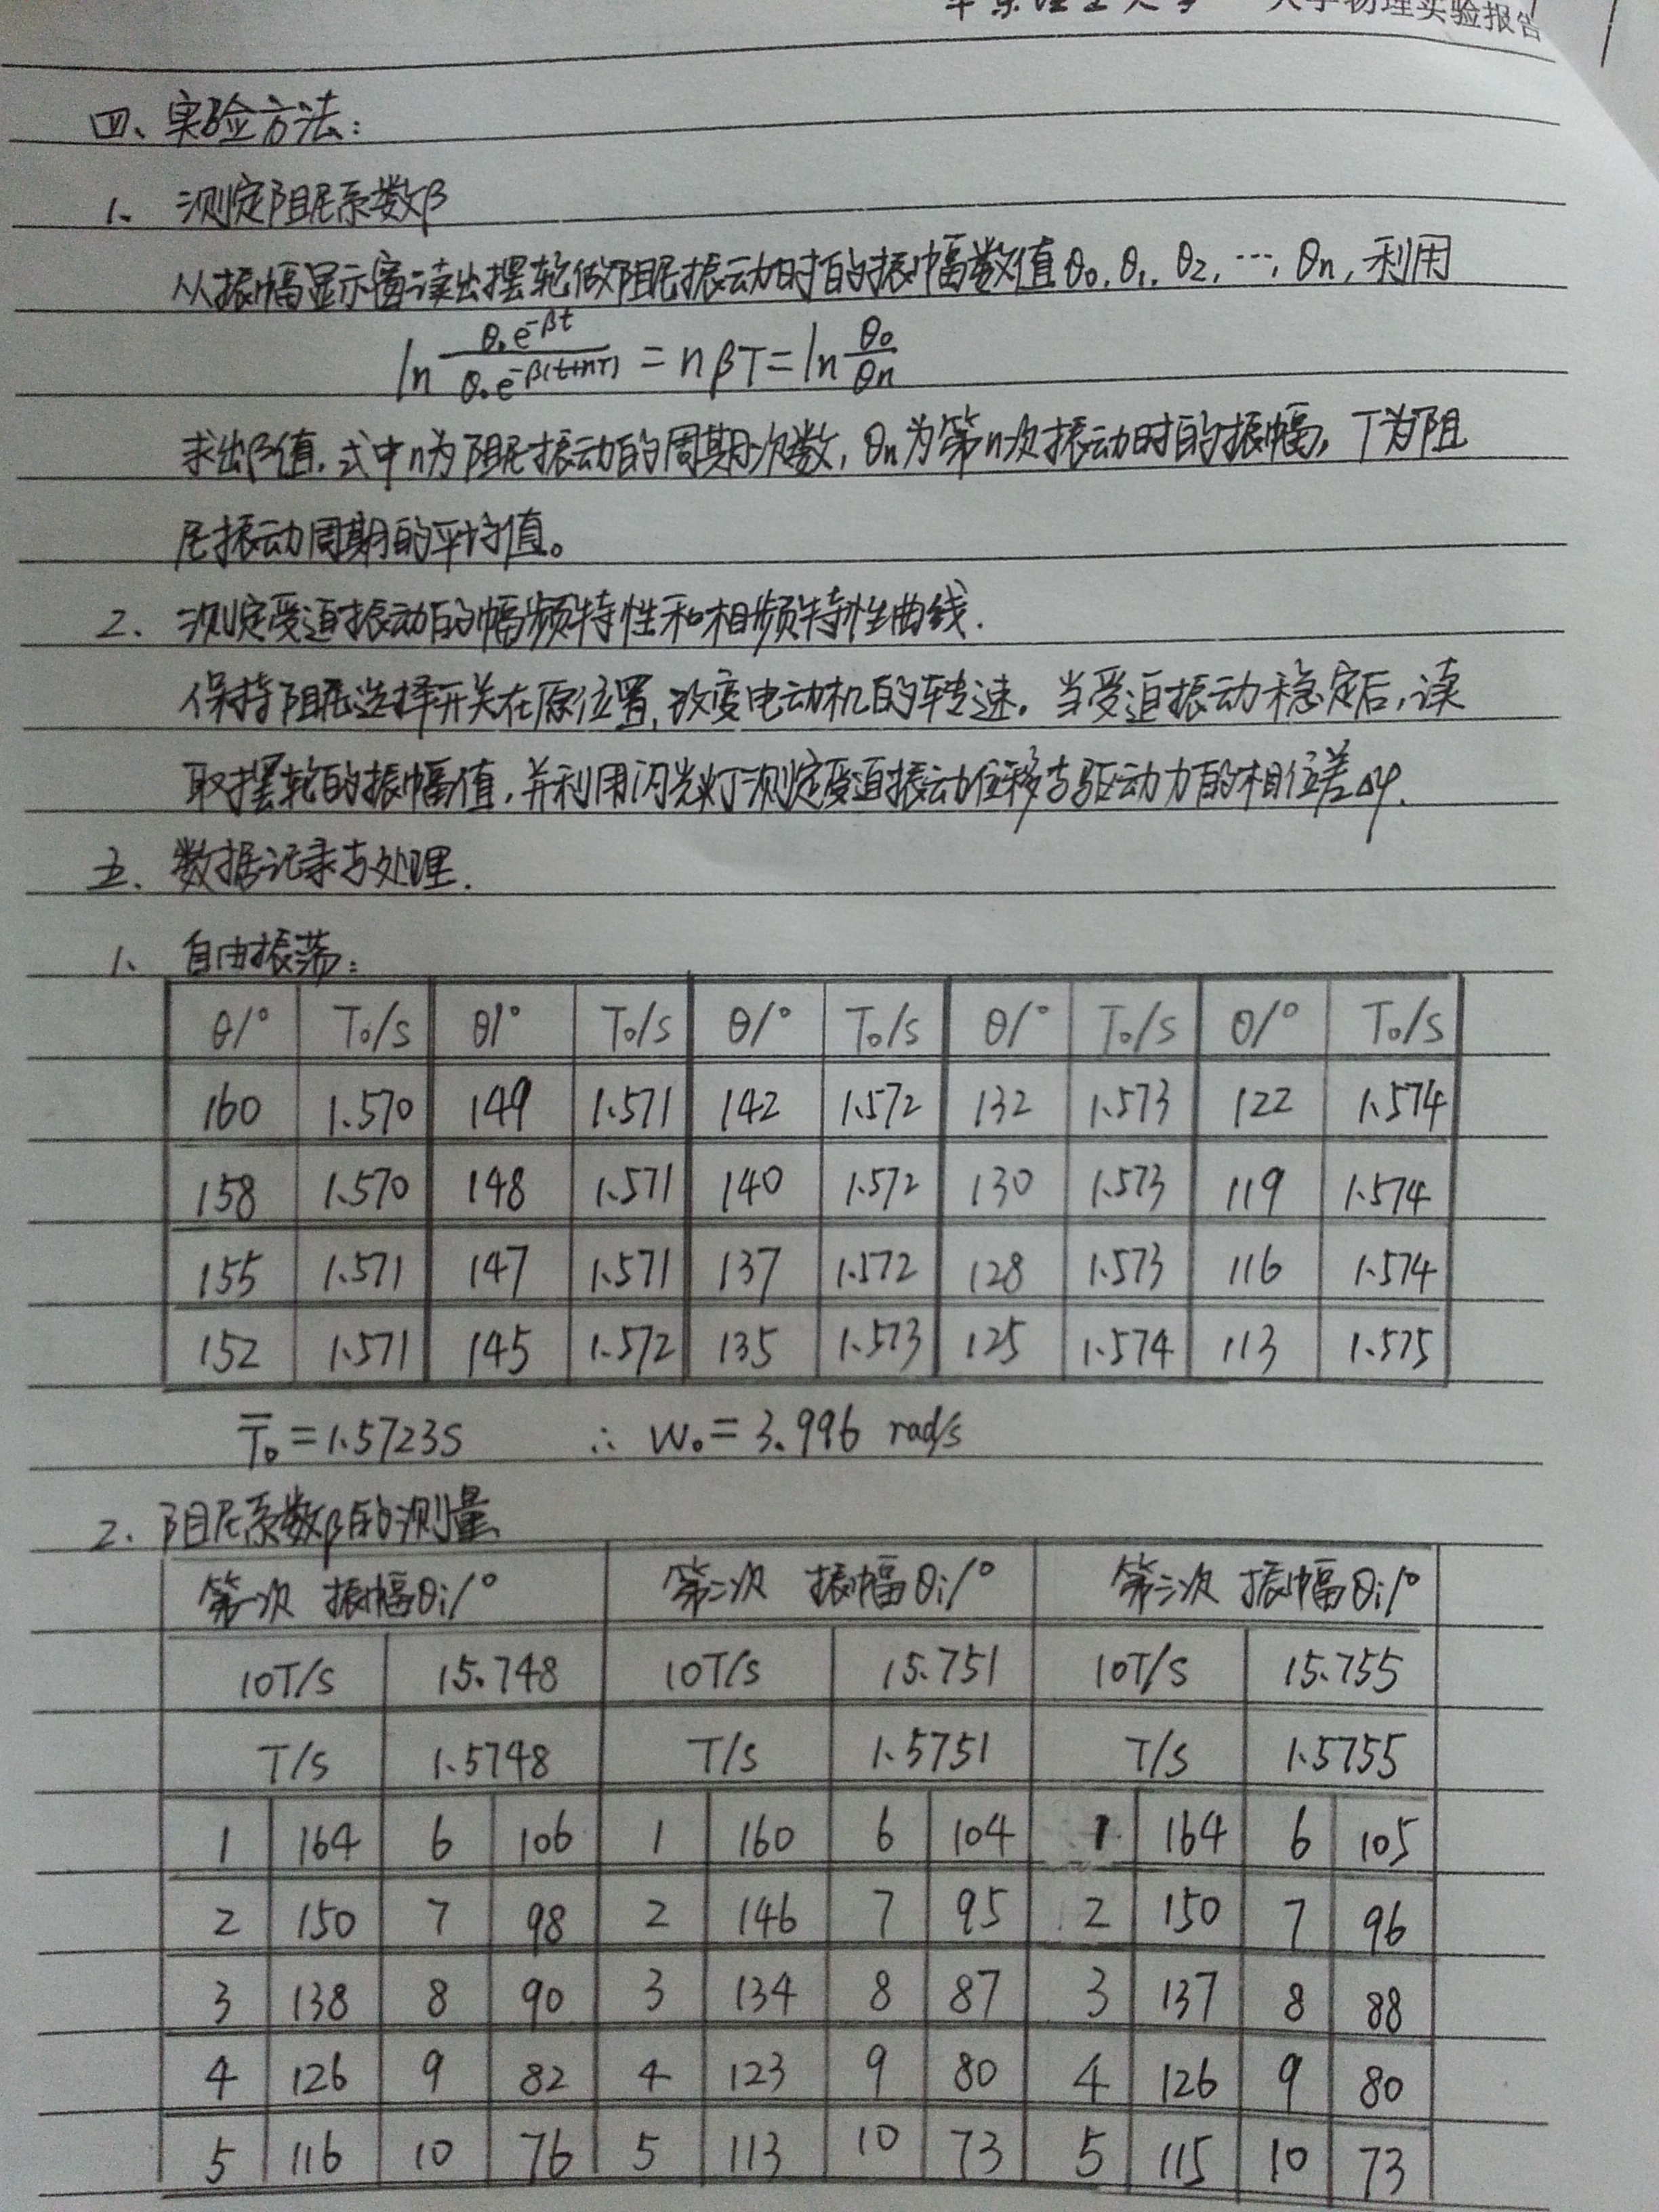 大学物理实验报告
四、实验方法:
1、测定阻尼系数β
从振幅显示窗读出摆轮做阻尼振动时的振幅数值θ₀, θ₁, θ₂, …, θn, 利用
ln θ₀e^(-βt) / θ₀e^(-β(t+nT)) = nβT = ln θ₀/θn
求出β值, 式中n为阻尼振动的周期次数, θn为第n次振动时的振幅, T为阻
尼振动周期的平均值。
2. 测定受迫振动的幅频特性和相频特性曲线.
保持阻尼选择开关在原位置, 改变电动机的转速。当受迫振动稳定后, 读
取摆轮的振幅值, 并利用闪光灯测定受迫振动位移与驱动力的相位差Δφ.
五、数据记录与处理.
1、自由振荡:
θ/° T₀/s θ/° T₀/s θ/° T₀/s θ/° T₀/s θ/° T₀/s
160 1.570 149 1.571 142 1.572 132 1.573 122 1.574
158 1.570 148 1.571 140 1.572 130 1.573 119 1.574
155 1.571 147 1.571 137 1.572 128 1.573 116 1.574
152 1.571 145 1.572 135 1.573 125 1.574 113 1.575
T̄₀=1.5723s ∴ W₀=3.996 rad/s
2. 阻尼系数β的测量
第一次 振幅θi/° 第二次 振幅θi/° 第三次 振幅θi/°
10T/s 15.748 10T/s 15.751 10T/s 15.755
T/s 1.5748 T/s 1.5751 T/s 1.5755
1 164 6 106 1 160 6 104 1 164 6 105
2 150 7 98 2 146 7 95 2 150 7 96
3 138 8 90 3 134 8 87 3 137 8 88
4 126 9 82 4 123 9 80 4 126 9 80
5 116 10 76 5 113 10 73 5 115 10 73